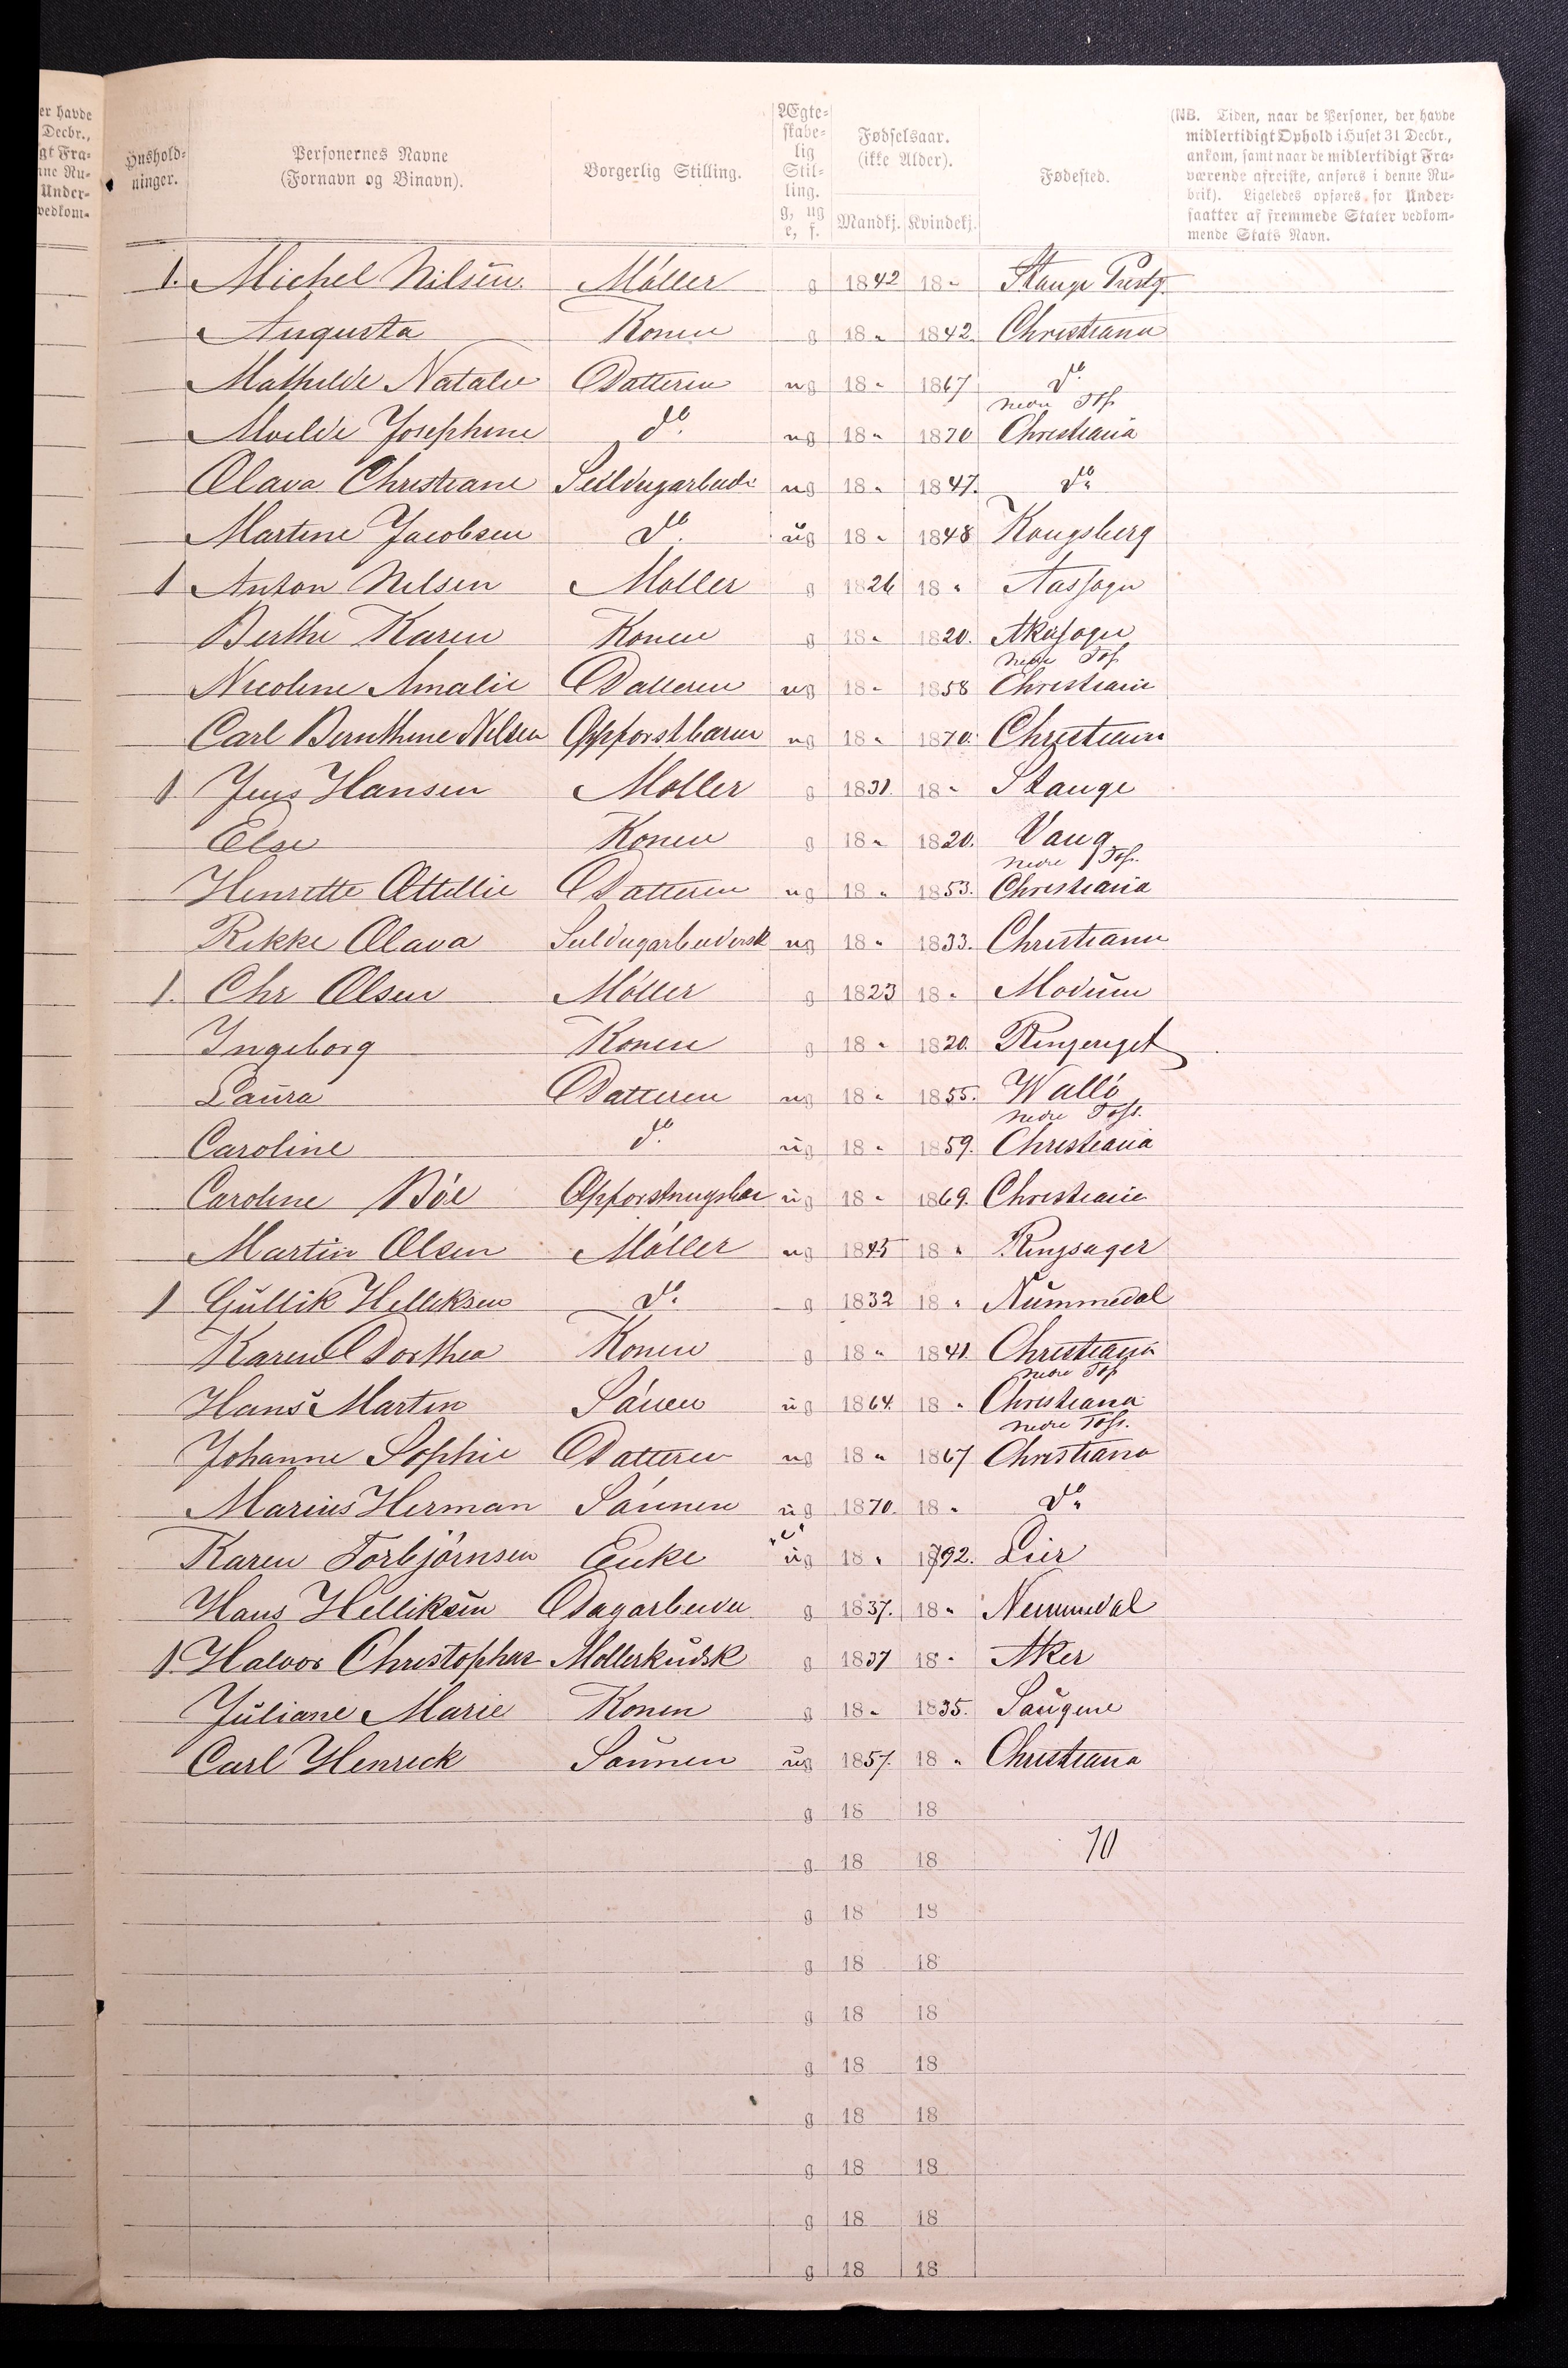 er havde
Decbr.,
gt Fra=
nne Ru=
Under=
vedkom=
Hushold=
ninger.
Personernes Navne
(Fornavn og Binavn).
Borgerlig Stilling.
Ægte=
skabe=
lig
Stil=
ling.
g, ug
e, f.
Fødselsaar.
(ikke Alder).
Mandkj. Kvindekj.
Fødested.
(NB. Tiden, naar de Personer, der havde
midlertidigt Ophold i Huset 31 Decbr.,
ankom, samt naar de midlertidigt Fra=
værende afreiste, anføres i denne Ru=
brik). Ligeledes opføres for Under=
saatter af fremmede Stater vedkom=
mende Stats Navn.
1. Michel Nilsen. Møller g 1842 18 " Stange Prestg.
Augusta Konen g 18 " 1842. Christiania
Mathilde Natalie Datteren ug 18 " 1867 do
nedre Tos.
Josephine do. ug 18 " 1870 Christiania
Olava Christiane ug 18 " 1847. do
Martine Jacobsen do. ug 18 " 1848 Kongsberg
1 Anton Nilsen Møller g 1826 18 " Aassogn
Berthe Karen Konen g 18 " 1820. Akersogn
nedre Tos
Nicoline Amalie Datteren ug 18 " 1858 Christiania
Carl Bernthine Nilsen Opfostbarn ug 18 " 1870. Christiania
1 Jens Hansen Møller g 1831. 18 " Stange
Else Konen g 18 " 1820. Vang
nedre Tos.
Henrette Ottillie Datteren ug 18 " 1853. Christiania
Rikke Olava ug 18 " 1833. Christiania
1. Chr Olsen Møller g 1823 18 " Modum
Ingeborg Konen g 18 " 1820. Ringeriget
Laura Datteren ug 18 " 1855. Wallö
nedre Toss.
Caroline do. ug 18 " 1859. Christiania
Caroline Böe Opfostringsbar ug 18 " 1869. Christiania
Martin Olsen Møller ug 1845 18 " Ringsager
1 Gullik Helliksen do. g 1832 18 " Nummedal
Karen Dorthea Konen g 18 " 1841. Christiania
nedre Tos
Hans Martin Sønen ug 1864. 18 " Christiania
nedre Toss.
Johanne Sophie Datteren ug 18 " 1867 Christiania
Marius Herman Sønnen ug 1870. 18 " do
"e"
Karen Torbjörnsen Enke ug 18 " 1792. Lier
Hans Helliksen Dagarbeider g 1837. 18 " Nummedal
1. Halvor Christophers Møllerkudsk g 1837 18 " Aker
Juliane Marie Konen g 18 " 1835. Saugene
Carl Henrick Sønnen ug 1857. 18 " Christiania
g 18 18
g 18 18 70
g 18 18
g 18 18
g 18 18
g 18 18
g 18 18
g 18 18
g 18 18
g 18 18